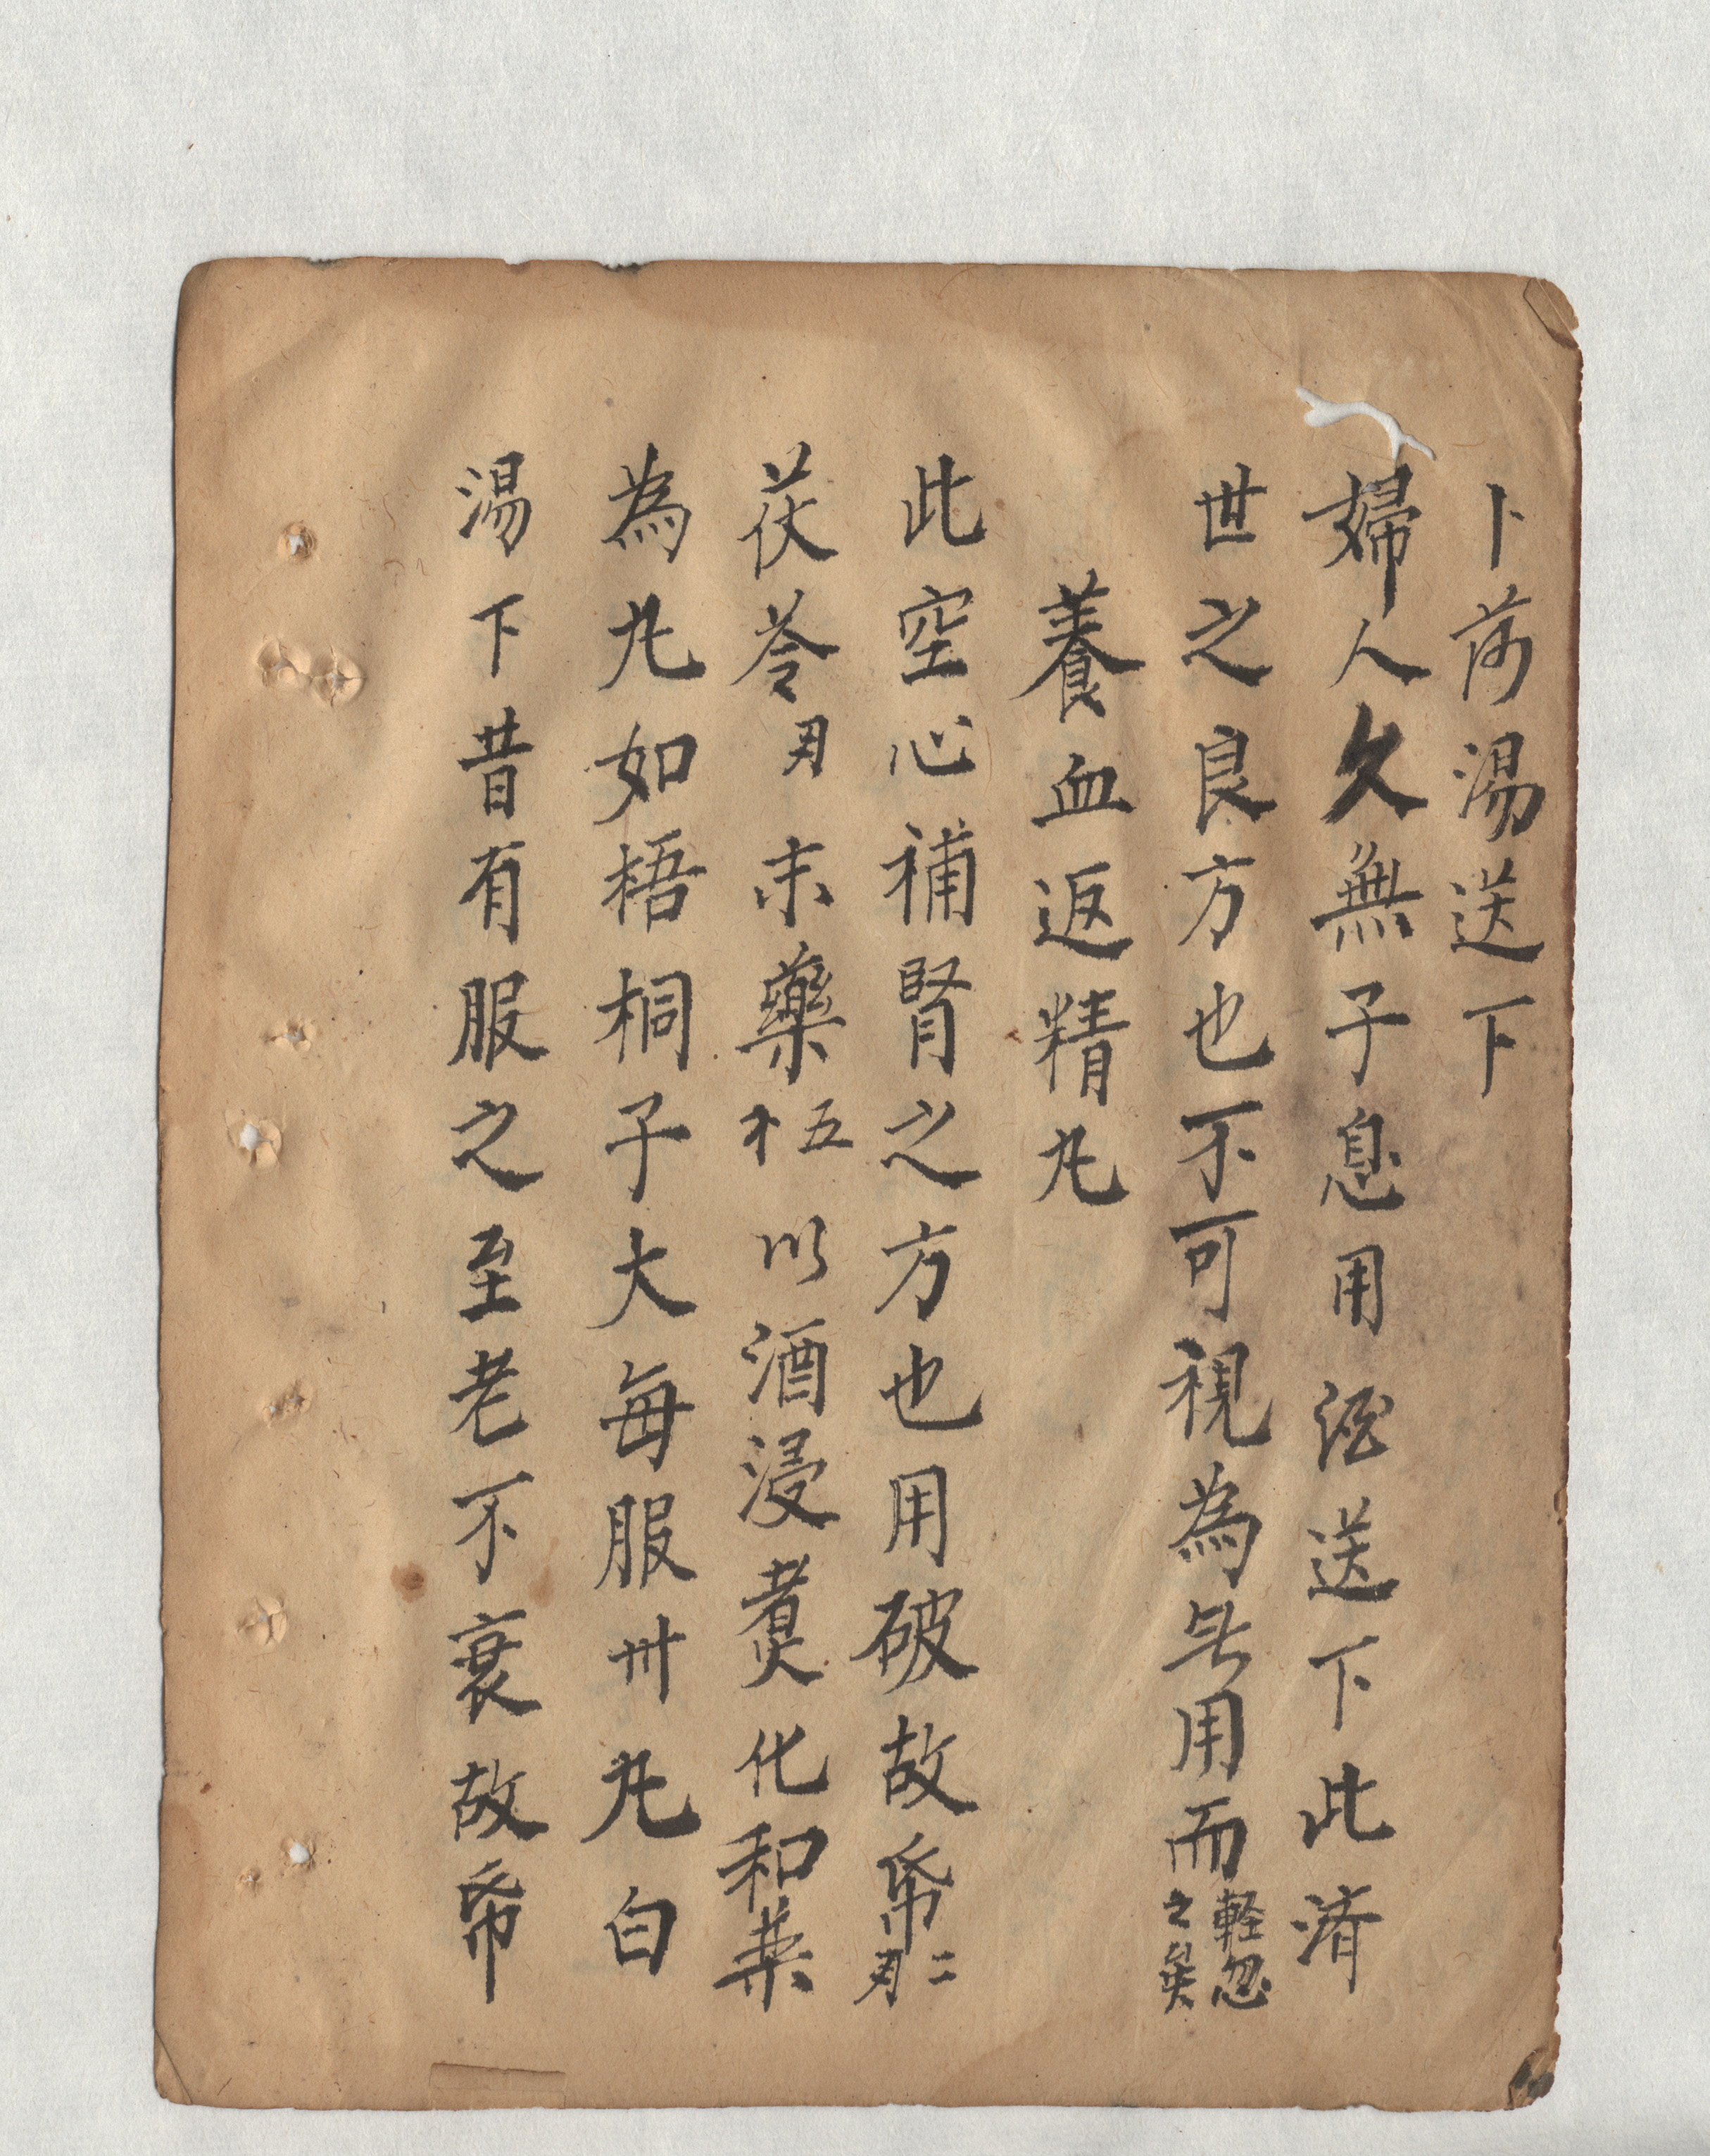 卜苻湯送下
婦人久無子息用酒送下此済
世之良方也不可視為無用而軽忽之矣
養血返精丸
此空心補腎之方也用破故帋二
茯苓 末藥五 以酒浸煑化和藥
為丸如梧桐子大每服卅丸白
湯下昔有服之至老不衰故帋